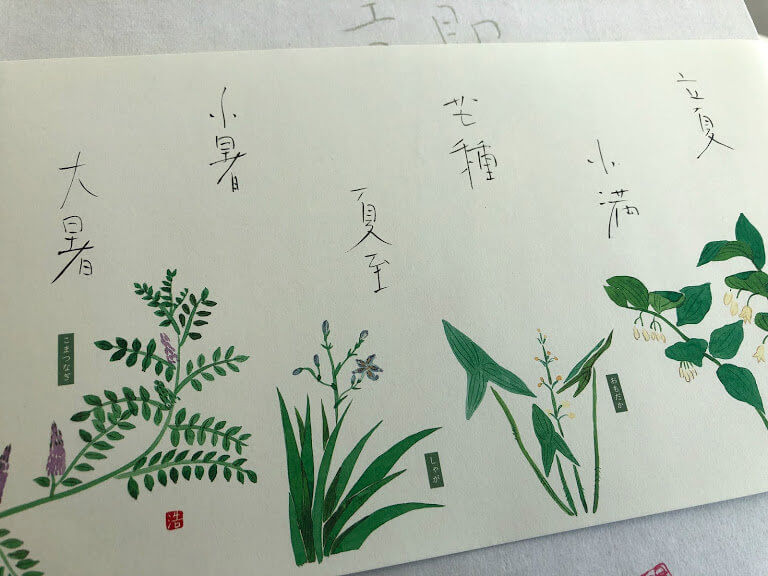 立夏
小満
芒種
夏至
小暑
大暑
おもだか
しゃが
こまつなぎ
浩